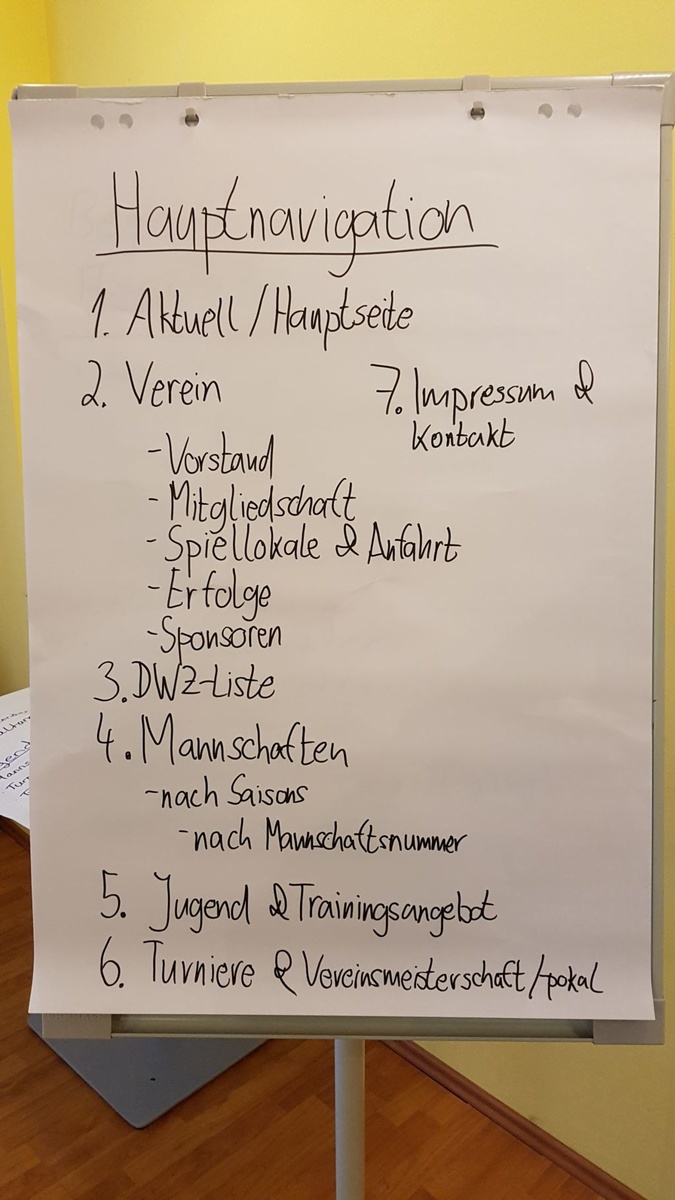 Hauptnavigation
1. Aktuell / Hauptseite
2. Verein
- Vorstand
- Mitgliedschaft
- Spiellokale & Anfahrt
- Erfolge
- Sponsoren
3. DWZ-Liste
4. Mannschaften
- nach Saisons
- nach Mannschaftsnummer
5. Jugend & Trainingsangebot
6. Turniere & Vereinsmeisterschaft/-pokal
7. Impressum &
Kontakt